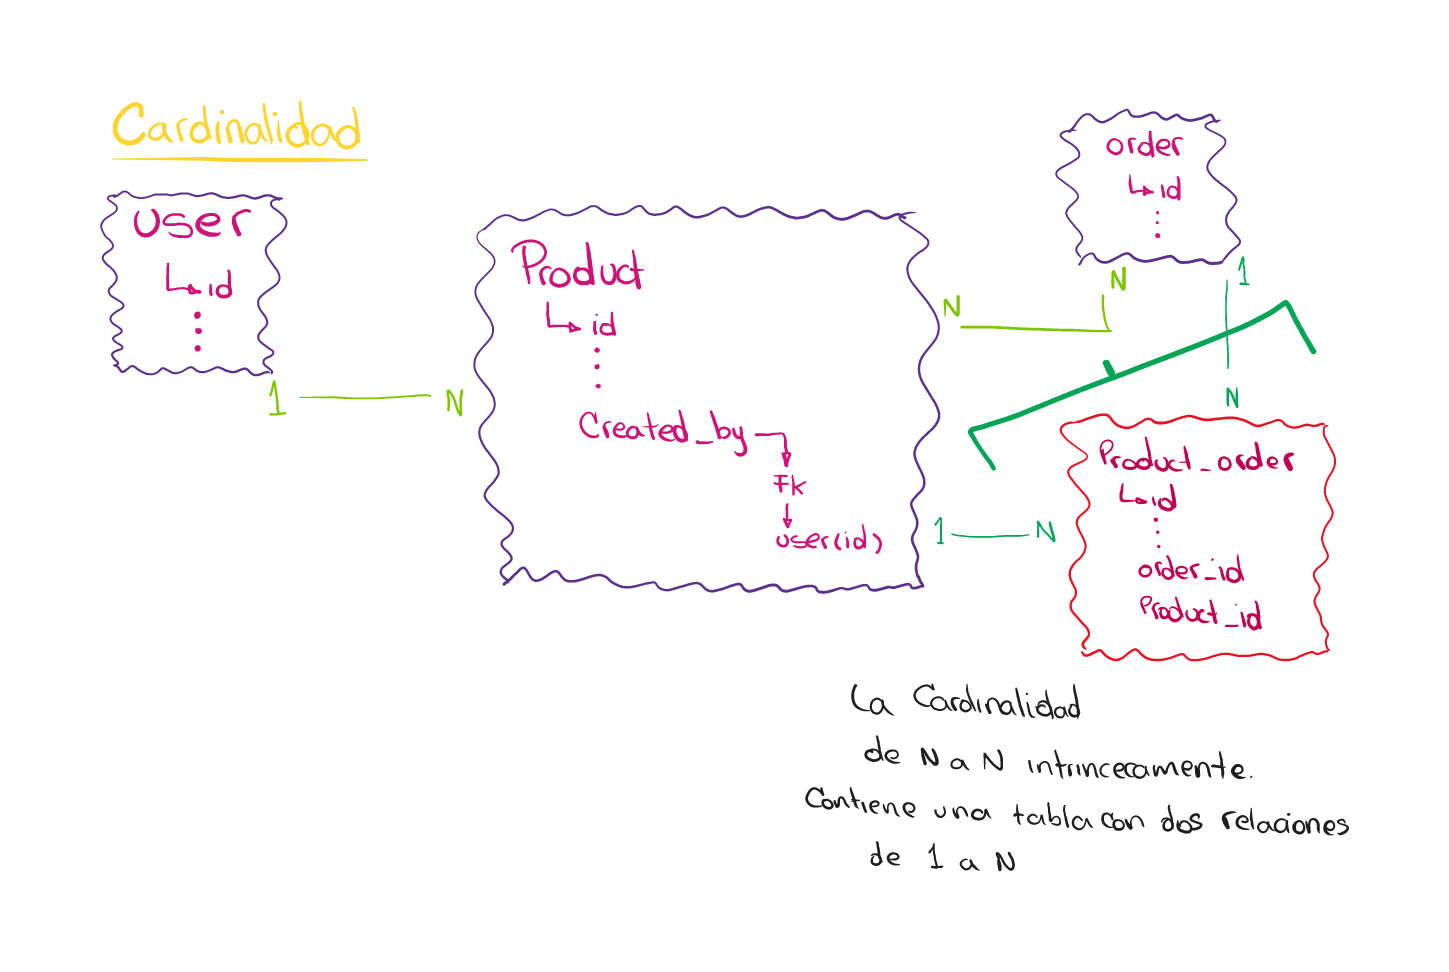 Cardinalidad
User
id
1
N
Product
id
Created_by
Fk
user(id)
order
id
N
N
1
N
1
N
Product_order
id
order_id
Product_id
La Cardinalidad
de N a N intrinceramente.
Contiene una tabla con dos relaciones
de 1 a N